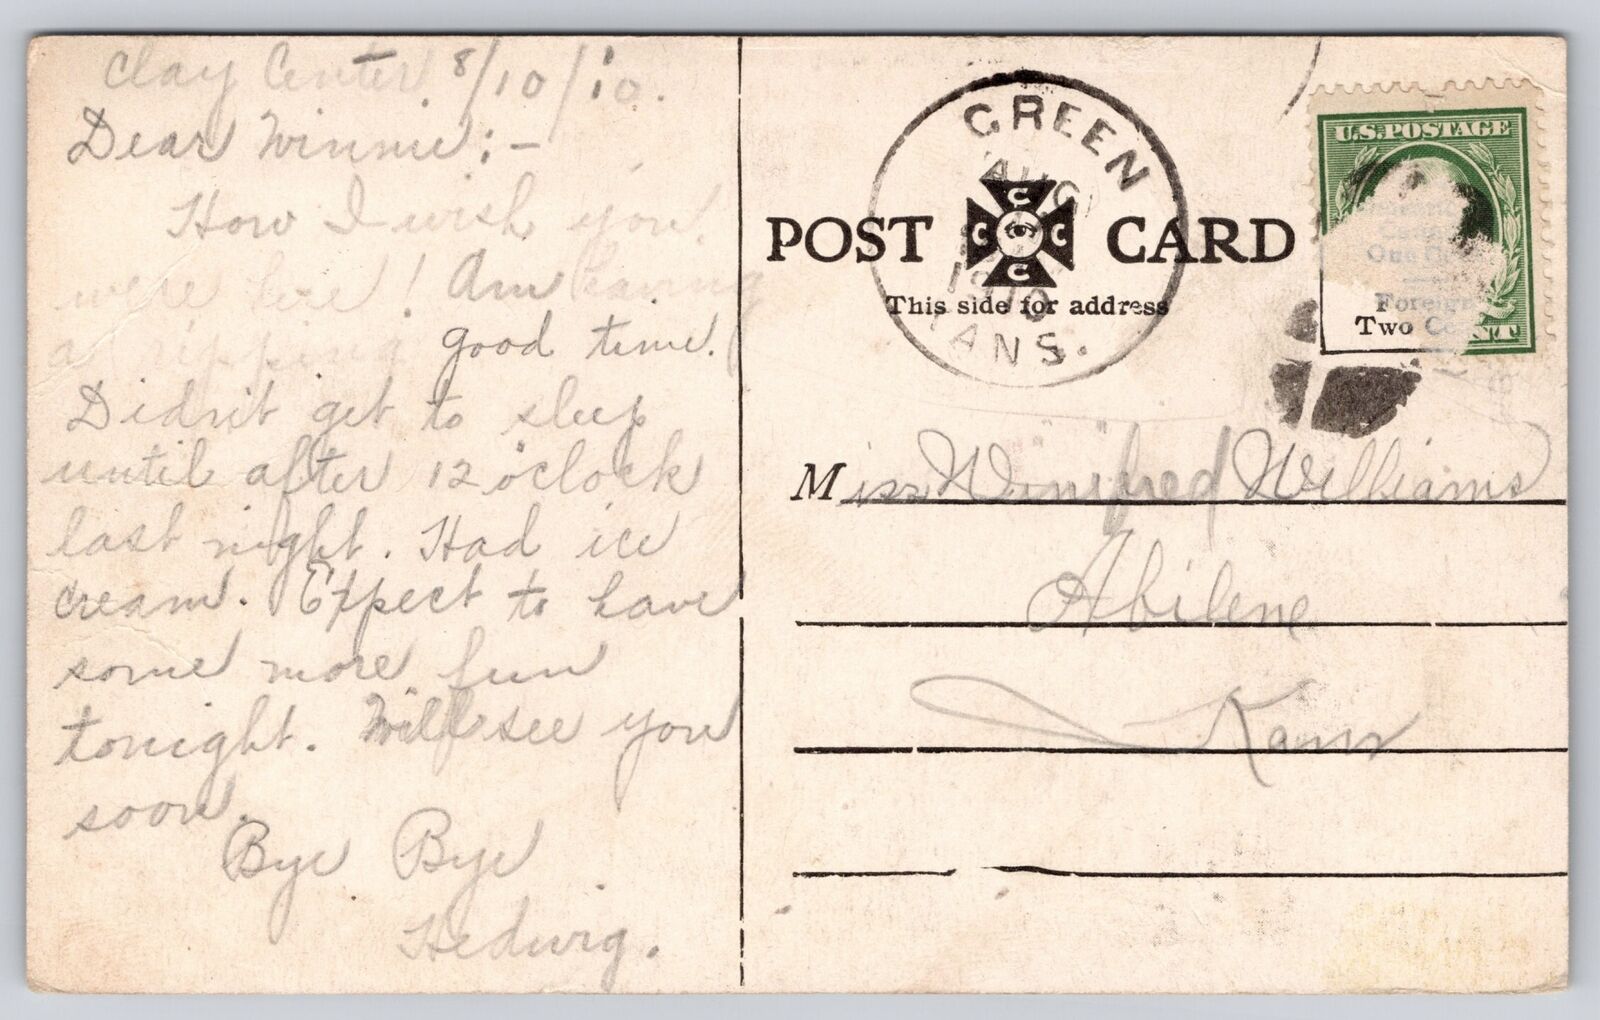 Clay Center 8/10/10.
Dear Winnie:-
How I wish you
were here! Am having
a ripping good time.
Didn't get to sleep
until after 12 o'clock
last night. Had ice
cream. Expect to have
some more fun
tonight. Will see you
soon.
Bye Bye
Hedwig.
GREEN
AUG
1910
KANS.
POST CARD
C C C C
This side for address
U.S. POSTAGE
One
Foreign
Two
Miss Winifred Williams
Abilene
Kans